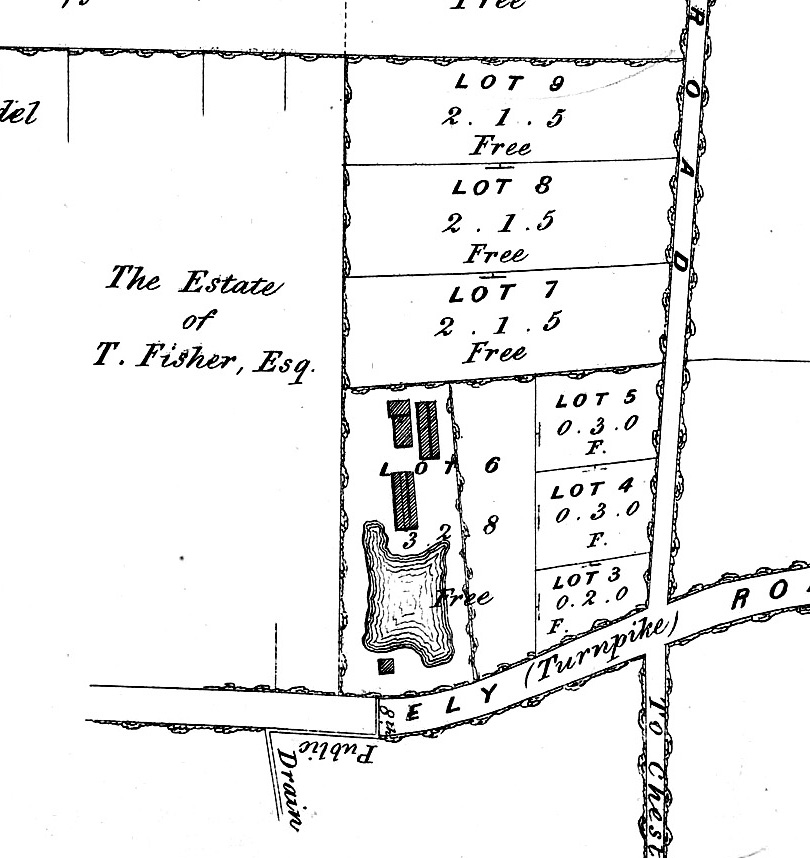 Free
ROAD
LOT 9
2.1.5
Free
LOT 8
2.1.5
Free
LOT 7
2.1.5
Free
The Estate
of
T. Fisher, Esq.
LOT 5
0.3.0
F.
LOT 6
LOT 4
0.3.0
F.
3.2 8
Free
LOT 3
0.2.0
F.
ELY (Turnpike) ROA
Public
Drain
To Chest